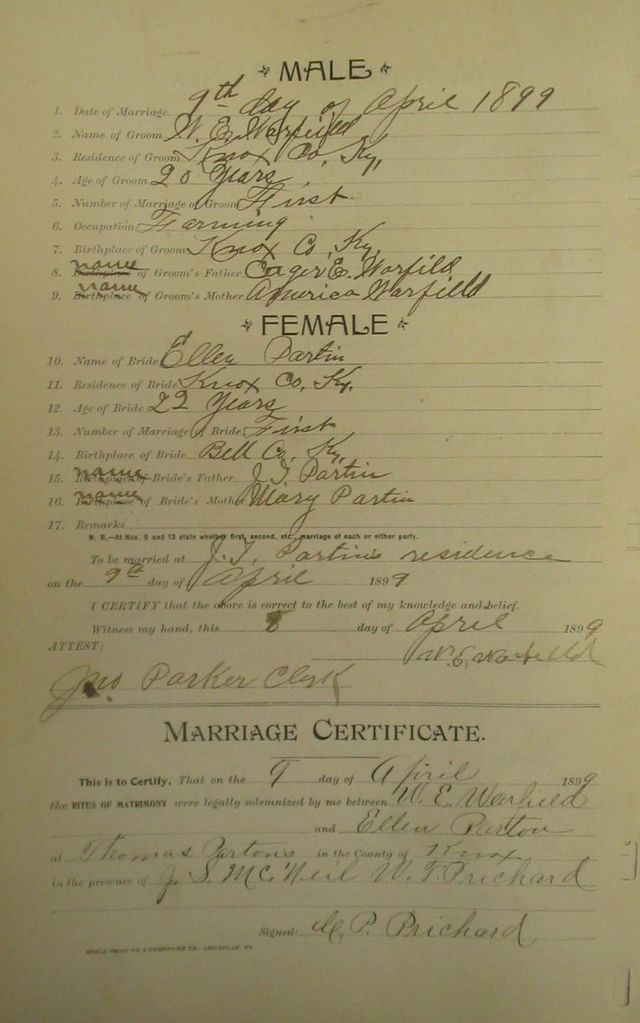 MALE
1. Date of Marriage 9th day of April 1899
2. Name of Groom W. E. Warfield
3. Residence of Groom Knox Co, Ky,
4. Age of Groom 20 Years
5. Number of Marriage of Groom First
6. Occupation Farming
7. Birthplace of Groom Knox Co, Ky,
8. name of Groom's Father E. Warfild
9. name Birthplace of Groom's Mother America Warfield
FEMALE
10. Name of Bride Ellen Partin
11. Residence of Bride Knox Co, Ky,
12. Age of Bride 22 Years
13. Number of Marriage of Bride First
14. Birthplace of Bride Bell Co, Ky,
15. name Birthplace of Bride's Father J. T. Partin
16. name Birthplace of Bride's Mother Mary Partin
17. Remarks
N. B.—At Nos. 5 and 13 state whether first, second, etc., marriage of each or either party.
To be married at J. T. Partin's residence
on the 9th day of April 1899
I CERTIFY that the above is correct to the best of my knowledge and belief.
Witness my hand, this 8 day of April 1899
ATTEST: W. E. Warfield
Jno Parker Clerk
MARRIAGE CERTIFICATE.
This is to Certify, That on the 9 day of April 1899
the RITES OF MATRIMONY were legally solemnized by me between W. E. Warfield
and Ellen Parton
at Thomas Partons in the County of Knox
in the presence of J. S. McNeil W. T. Prichard
Signed: P. Prichard